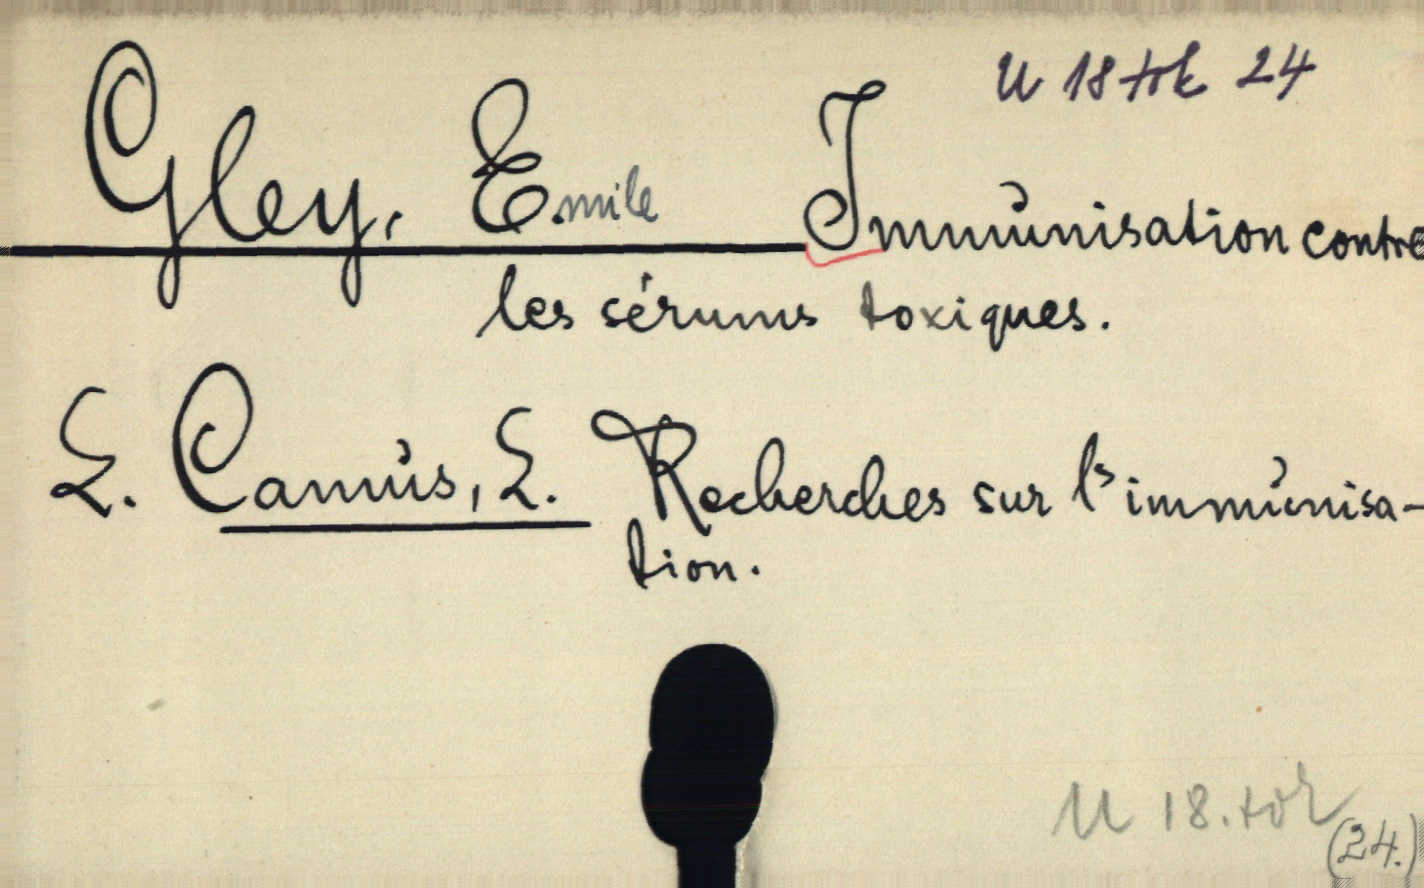 U 18 tök 24
Gley, Emile Immunisation contre
les sérums toxiques.
L. Camus, L. Recherches sur l'immunisa-
tion.
U 18. tör
(24.)